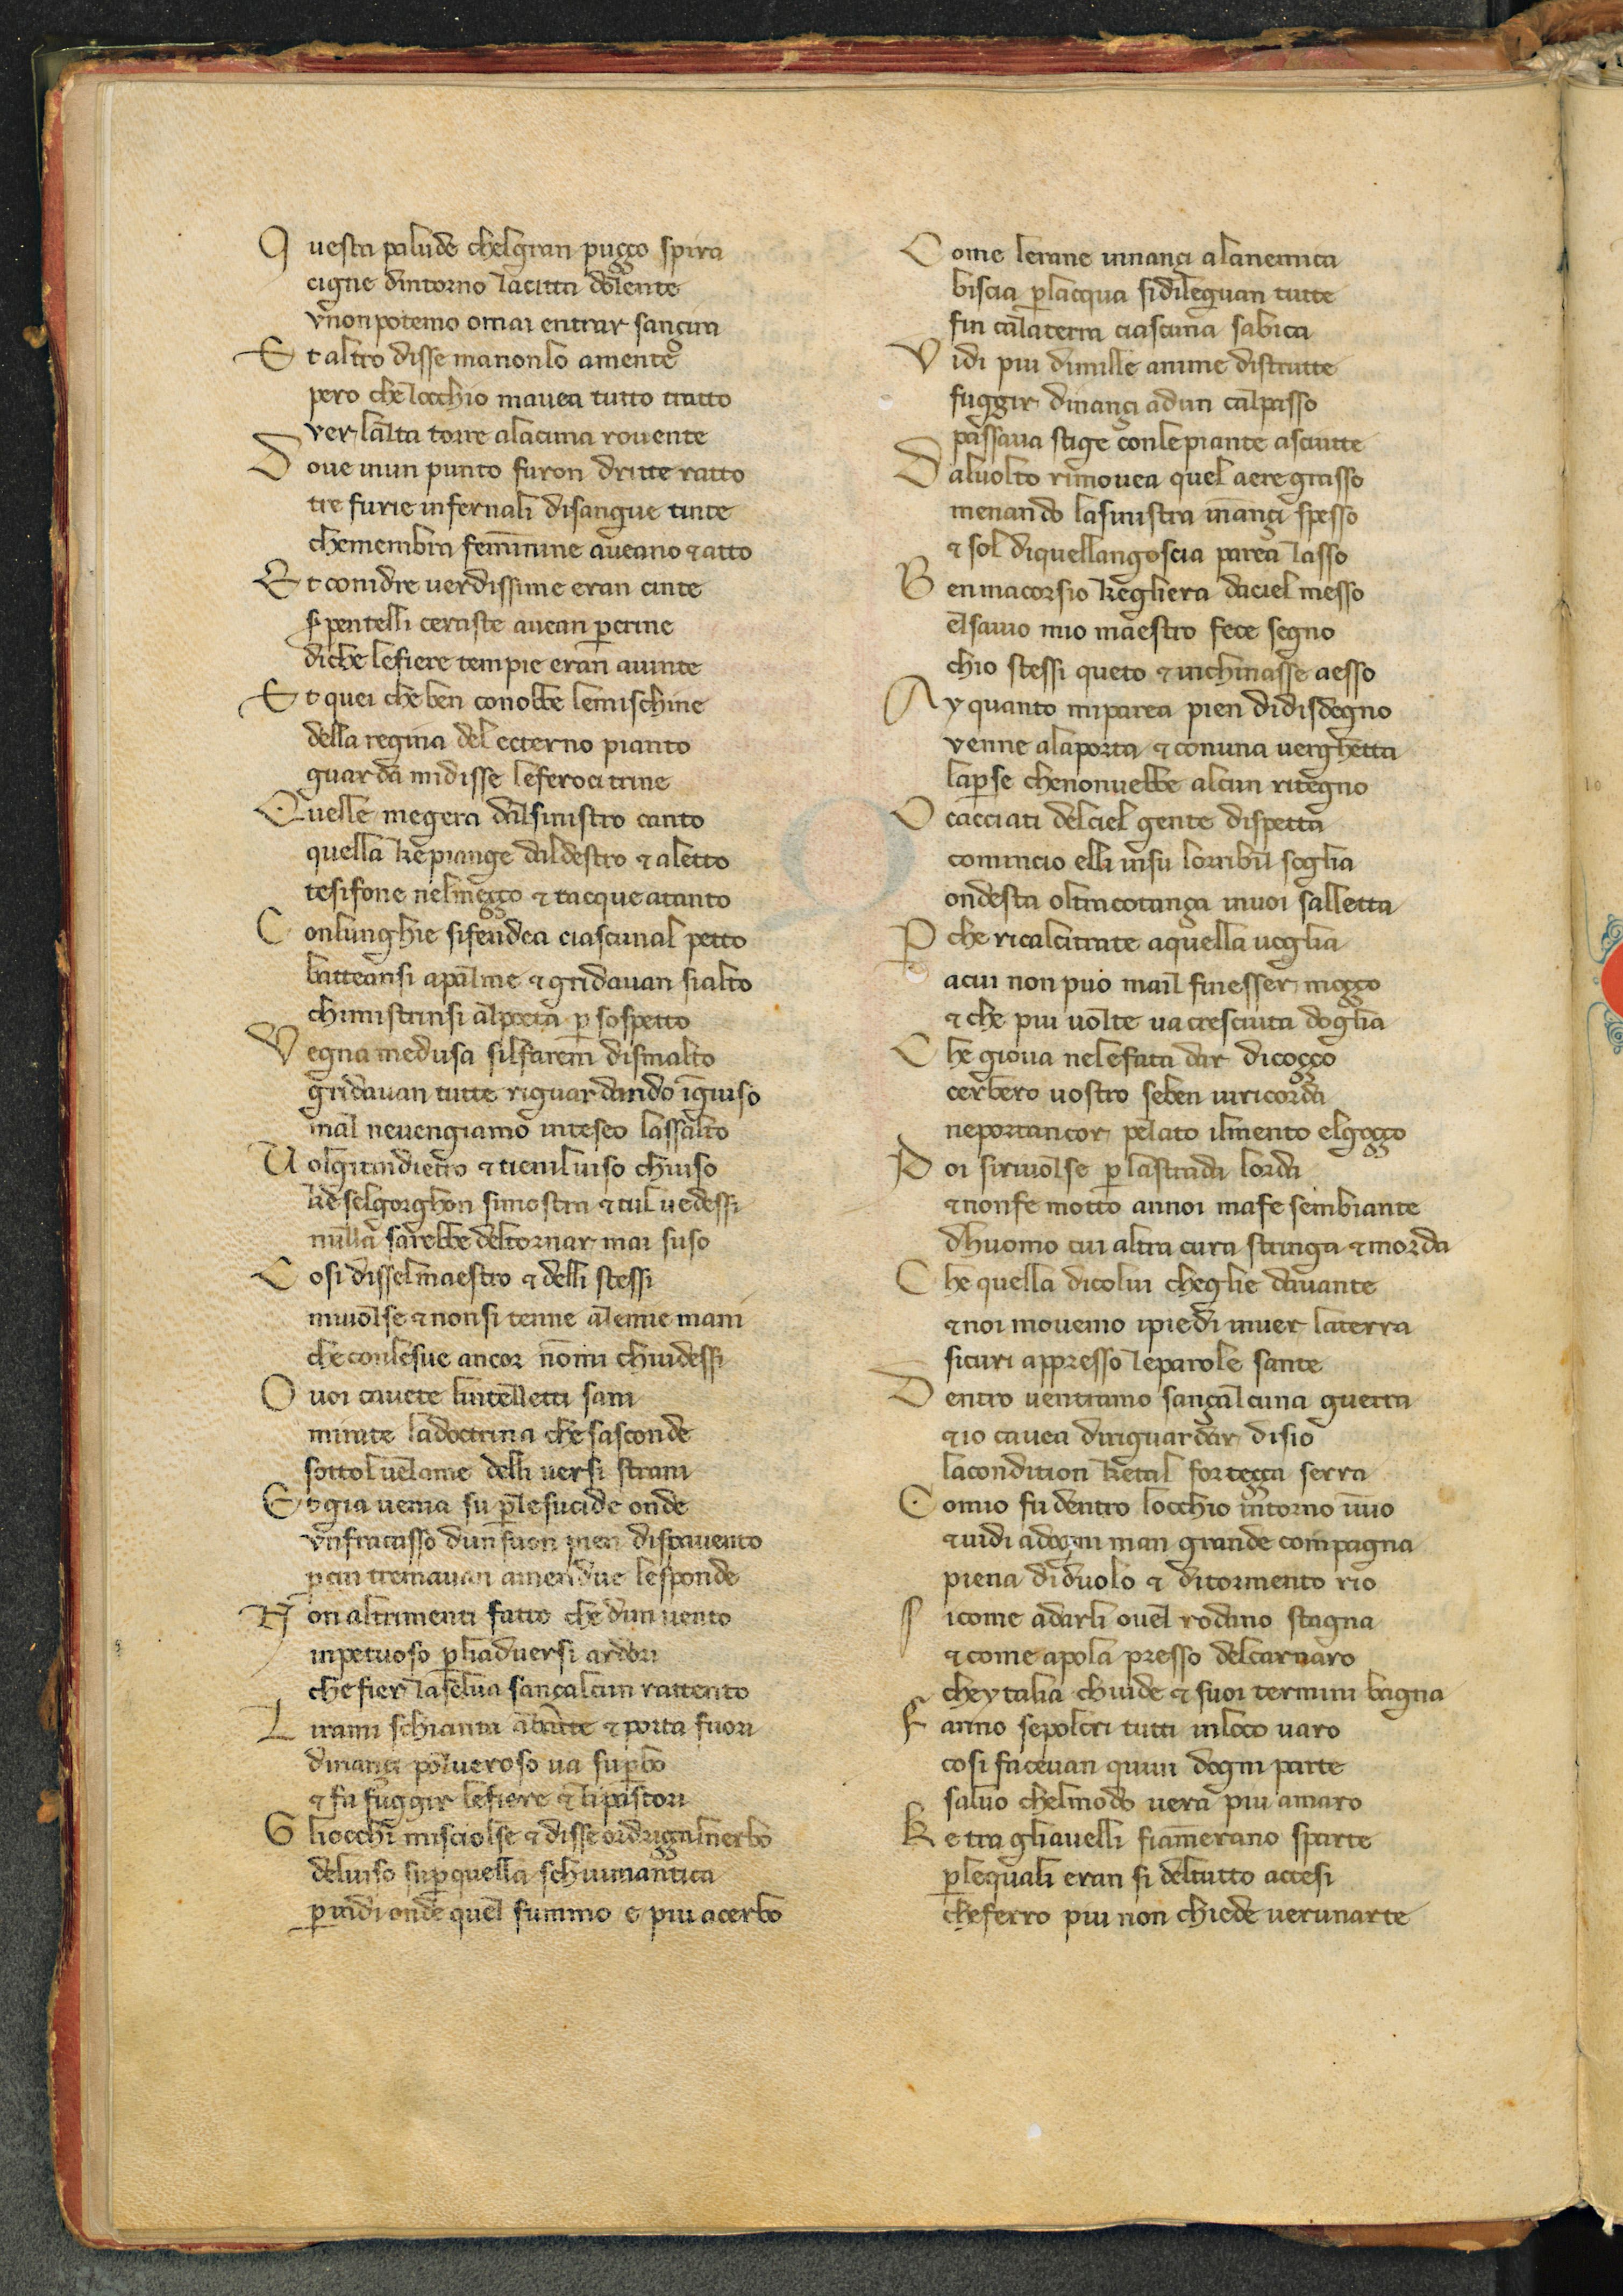 Questa palude chelgran puçço spira
cigne dintorno lacitta dolente
vnonpotemo omai entrar sançira
Et altro disse manonlo amente
pero chelocchio mauea tutto tratto
ver lalta torre alacima rouente
Doue inun punto furon dritte ratto
tre furie infernali disangue tinte
chemembra feminine aueano ⁊ atto
Et conidre uerdissime eran cinte
serpentelli ceraste auean percrine
diche lefiere tempie eran auinte
Et quei che ben conobbe lemischine
della regina del ecterno pianto
guarda midisse leferoci trine
Quelle megera dalsinistro canto
quella kepiange daldestro ⁊ aletto
tesifone nelmeçço ⁊ tacque atanto
Conlunghie sifendea ciascunal petto
batteansi apalme ⁊ gridauan sialto
chimistrinsi alpoeta p sospetto
Vegna medusa silfarem dismalto
gridauan tutte riguardando ingiuso
mal neuengiamo inteseo lassalto
Volgitindietro ⁊ tienluiso chiuso
ke selgorghon simostra ⁊ tul uedessi
nulla sarebbe deltornar mai suso
Cosi disselmaestro ⁊ delli stessi
miuolse ⁊ nonsi tenne alemie mani
che conlesue ancor nōmi chiudessi
O uoi cauete lintelletti sani
mirate ladoctrina che sasconde
sottol uelame delli uersi strani
Et gia uenia su plesucide onde
vnfracasso dunsuon pien dispauento
pcui tremauan amendue lesponde
Non altrimenti fatto che dun uento
inpetuoso pliaduersi ardori
chefier laselua sançalcun rattento
Lirami schianta abatte ⁊ porta fuori
dinançi polueroso ua supbo
⁊ fa fuggir lefiere ⁊ lipastori
Gliocchi misciolse ⁊ disse ordriçalnerbo
deluiso supquella schiumantica
pindi onde quel fummo e piu acerbo
Come lerane innançi alanemica
biscia placqua sidileguan tutte
fin calaterra ciascuna sabica
Vidi piu dimille anime distrutte
fuggir dinançi adun calpasso
passaua stige conlepiante asciutte
Daluolto rimouea quel aere grasso
menando lasinistra inançi spesso
⁊ sol diquellangoscia parea lasso
Ben macorsio kegliera daciel messo
elsauio mio maestro fece segno
chio stessi queto ⁊ inchinasse aesso
Ay quanto miparea pien didisdegno
venne alaporta ⁊ conuna uerghetta
lapse chenonuebbe alcun ritegno
O cacciati delciel gente dispetta
comincio elli insu lorribil soglia
ondesta oltracotança inuoi salletta
Pche ricalcitrate aquella uoglia
acui non puo mail finesser moçço
⁊ che piu uolte ua cresciuta doglia
Che gioua nelefata dar dicoçço
cerbero uostro seben uiricorda
neportancor pelato ilmento elgoçço
Poi siriuolse p lastrada lorda
⁊nonfe motto annoi mafe sembiante
dhuomo cui altra cura stringa ⁊ morda
Che quella dicolui cheglie dauante
⁊noi mouemo ipiedi inuer laterra
sicuri appresso leparole sante
Dentro uentramo sançalcuna guerra
⁊io cauea diriguardar disio
lacondition ketal forteçça serra
Comio fu dentro locchio intorno inuio
⁊uidi adogni man grande compagna
piena diduolo ⁊ ditormento rio
Sicome adarli ouel rodano stagna
⁊ come apola presso delcarnaro
cheytalia chiude ⁊ suoi termini bagna
Fanno sepolcri tutti inloco uaro
cosi faceuan quiui dogni parte
saluo chelmodo uera piu amaro
Ke tra gliauelli fiammerano sparte
plequali eran si deltutto accesi
cheferro piu non chiede uerunarte